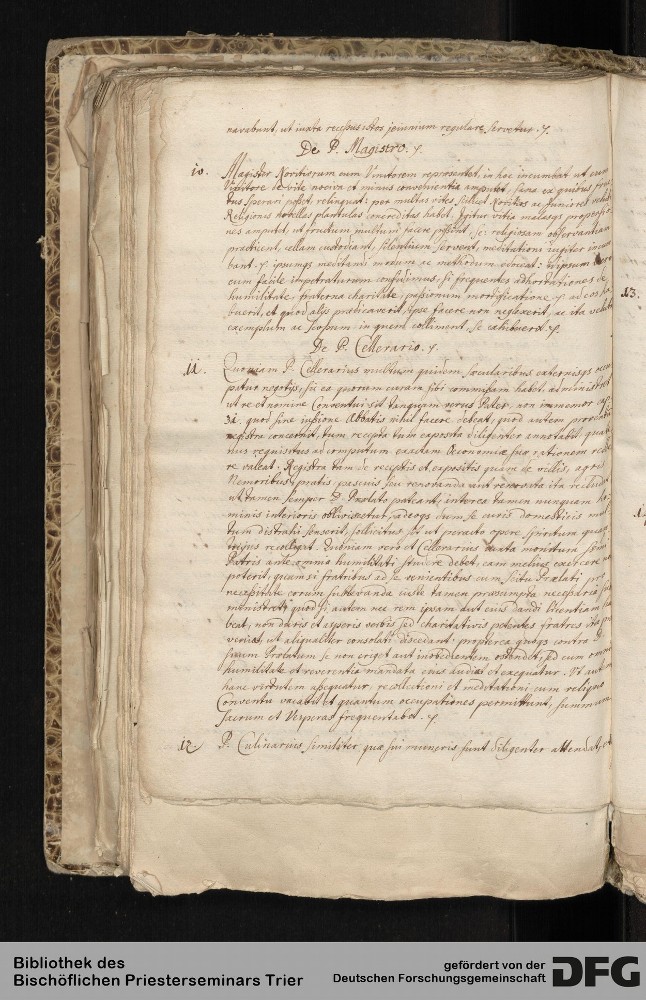 navabunt, ut iuxta recessus istos jejunium regulare servetur. γ.
De P. Magistro. γ.
10. Magister Novitiorum cum Vinitorem representet, in hoc incumbat ut cum
Vinitore de vite noxia et minus convenientia amputet, sana ex quibus
tus sperari posset, relinquat: per multas vites scilicet Novitios ac Juniores
Religionis novellas plantulas concreditas habet. Igitur vitia malasque
nes amputet, ut fructum multum facere possint, sc: religiosam observantiam
practicent, cellam custodiant, silentium servent, meditationi jugiter incum
bant. γ. ipsumque meditandi modum ac methodum edoceat:
cum facile impetraturum confidimus, si frequentes adhortationes de
humilitate, fraterna charitate, passionum mortificatione γ ad eos ha
buerit, et quod aliis praedicaverit, ipse facere non neglexerit, ac ita veluti
exemplum ac scopum in quem colliment, se exhibuerit. γ.
De P. Cellerario. γ.
11. Quoniam P. Cellerarius multum quidem, saecularibus externisque
patur negotiis, sic ea quorum curam sibi commissam habet,
ut re et nomine Conventui sit tanquam verus Pater, non immemor cap:
31. quod sine iussione Abbatis nihil facere debeat, quod autem
registra concernit, tum recepta tum exposita diligenter annotabit
nus requisitus ad computum exactam Oeconomiae suae rationem
re valeat. Registra tam de receptis et expositis quam de villis, agris
Nemoribus, pratis, pascuis seu renovanda aut renovata ita
ut tamen semper D. Praelato pateant; interea tamen nunquam ho
minis interioris obliviscetur, adeoque dum se curis domesticis mul
tum distrahi senserit, sollicitus sit ut peracto opere spiritum
recolligat. Quoniam vero et Cellerarius iuxta monitum
Patris ante omnia humilitati studere debet, eam melius exercere non
poterit, quam si fratribus ad se venientibus cum scitu Praelati pro
necessitate eorum sublevanda iuste tamen praesumpta necessaria
ministret; quod si autem nec rem ipsam aut eius dandi licentiam
beat, non duris et asperis verbis, sed charitativis petentes fratres ita
veniat, ut aliqualiter consolati discedant: propterea quoque contra
suum Praelatum se non eriget aut inobedientem ostendet, sed cum omni
humilitate et reverentia mandata eius audiat et exequatur. Ut autem
hanc virtutem assequatur, recollectioni et meditationi cum reliquo
Conventu vacabit et quantum occupationes permittunt, summum
Sacrum et Vesperas frequentabit. γ.
12. P. Culinarius similiter, quae sui muneris sunt diligenter attendat,
13.
Bibliothek des
Bischöflichen Priesterseminars Trier
gefördert von der
Deutschen Forschungsgemeinschaft
DFG